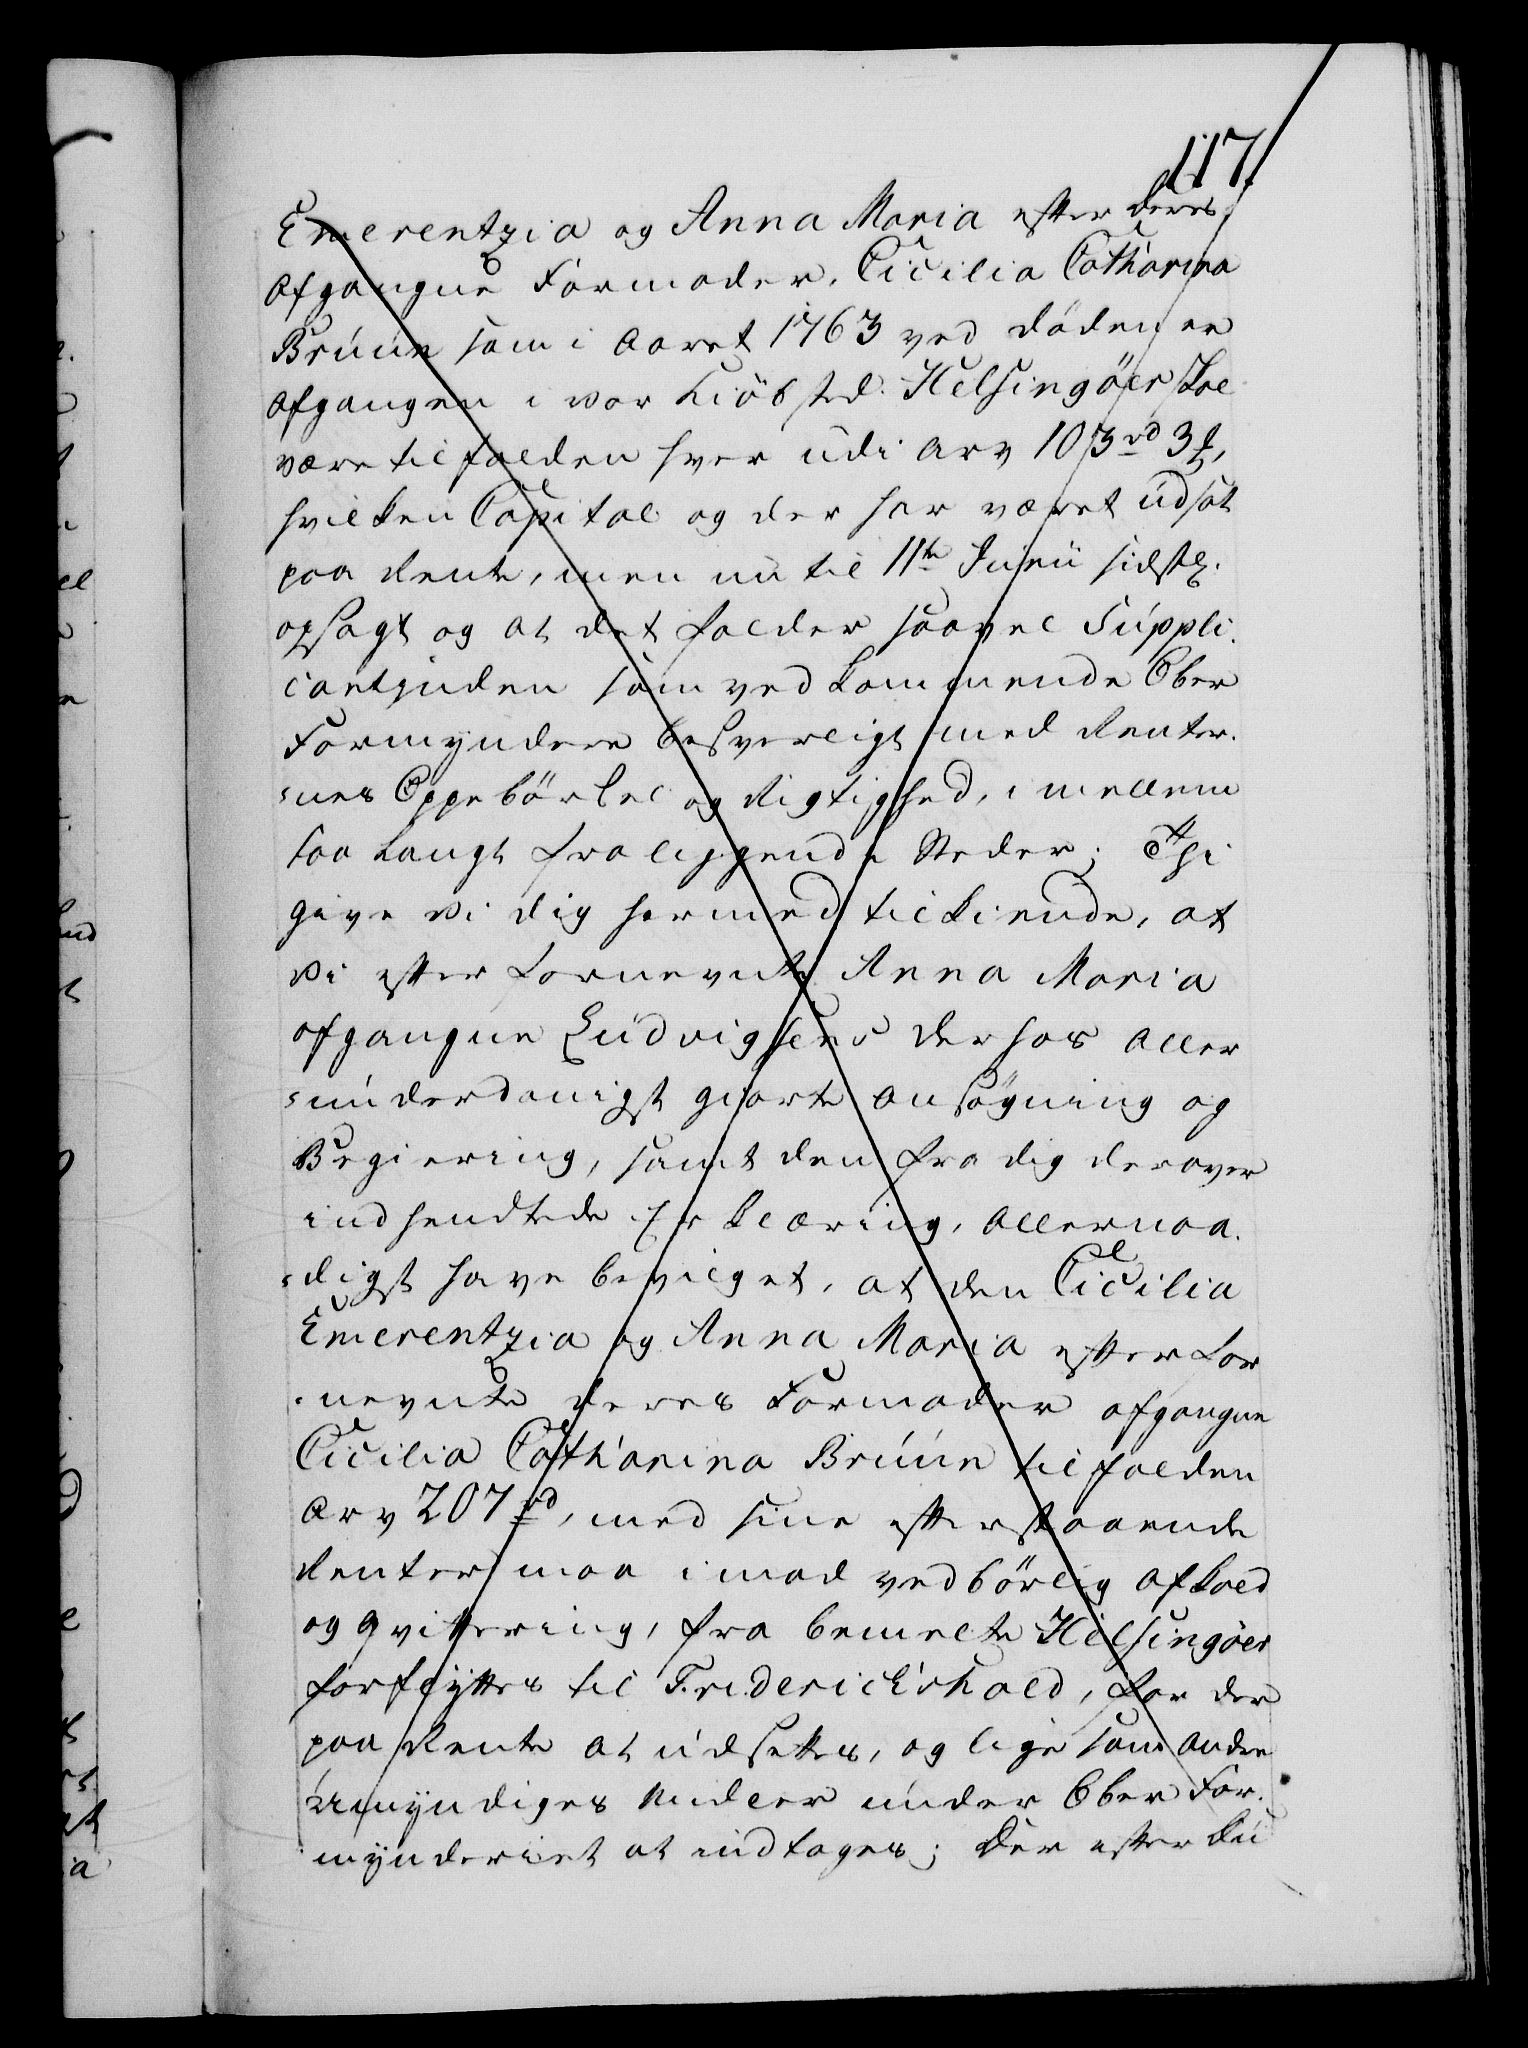 117.
Emerentzia og Anna Maria efter deres
afgangne Formoder, Cicilia Catharina
Bruun som i Aaret 1763 ved döden er
afgangen i vor Kiöbsted Helsingöer skal
være tilfalden hver udi Arv 103 rd 3 ꝑ,
hvilken Capital og der har været udsat
paa Rente, men nu til 11te Junii sidstl.
opsagt og at det falder saavel Suppli-
cantinden som vedkommende Ober
Formyndere besverligt med Renter-
=nes Oppebörsel og Rigtighed, imellem
saa langt fraliggende Steder; Thi
give Vi dig hermed tilkiende, at
Vi efter fornevnte Anna Maria
afgangne Ludvigsens derhos aller
=underdanigst giorte Ansögning og
Begiering, samt den fra dig derover
indsendtede Erklæring, allernaa-
=digst have bevilget, at den Cicilia
Emerentzia og Anna Maria efter for
=nevnte deres Formoder afgangne
Cicilia Catharina Bruun tilfalden
Arv 207 rd, med sine efterstaaende
Renter maa imod vedbörlig Afkald
og Qvittering, fra bemelte Helsingöer
forflyttes til Friderichshald, for der
paa Rente at udsettes, og lige som andre
Umyndiges Midler under Ober For-
mynderiet at indtages; Der efter Du